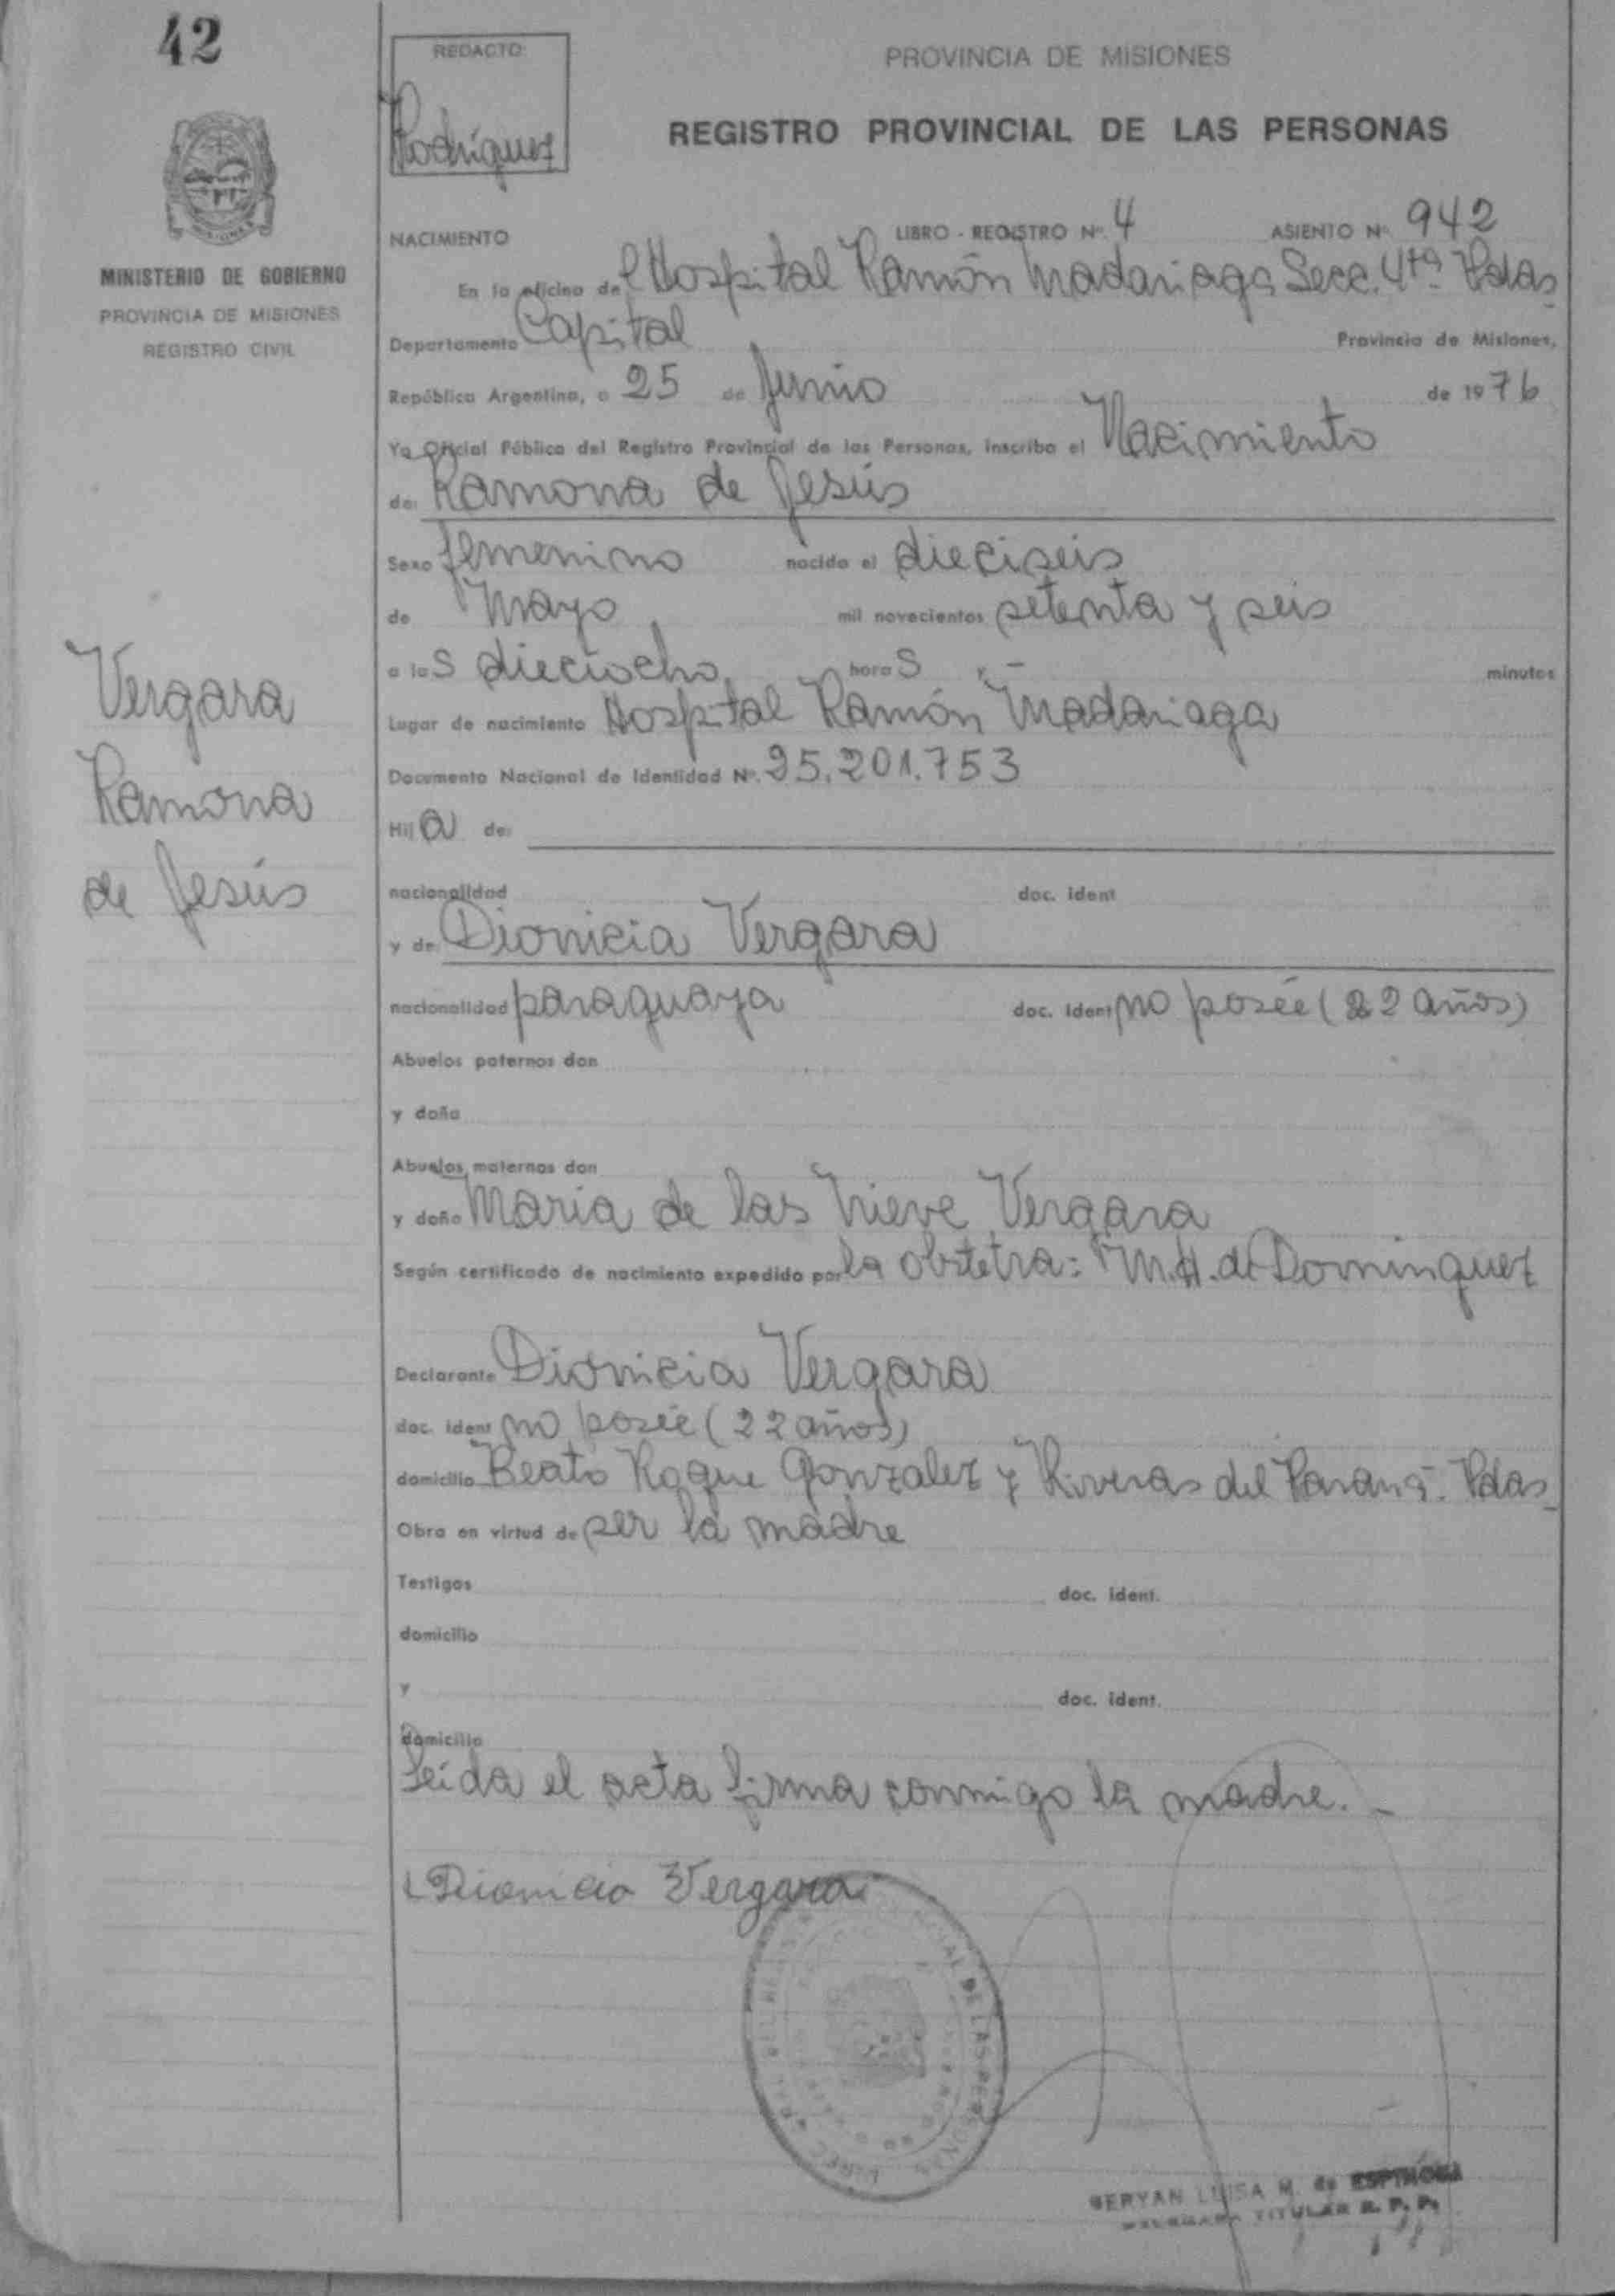 42
REDACTO:
Rodríguez
PROVINCIA DE MISIONES
REGISTRO PROVINCIAL DE LAS PERSONAS
MINISTERIO DE GOBIERNO
PROVINCIA DE MISIONES
REGISTRO CIVIL
NACIMIENTO LIBRO - REGISTRO Nº. 4 ASIENTO Nº. 942
En la oficina del Hospital Ramón Madariaga Secc. 4ta. Pdas
Departamento Capital Provincia de Misiones,
República Argentina, a 25 de Junio de 1976
Yo Oficial Público del Registro Provincial de las Personas, inscribo el Nacimiento
de: Ramona de Jesús
Sexo femenino nacido el dieciseis
de Mayo mil novecientos setenta y seis
a las dieciocho horas y - minutos
Lugar de nacimiento Hospital Ramón Madariaga
Documento Nacional de Identidad Nº. 25.201.753
Hija de:
nacionalidad doc. ident
y de Dionicia Vergara
nacionalidad paraguaya doc. ident no posée (22 años)
Abuelos paternos don
y doña
Abuelos maternos don
y doña María de las Nieve Vergara
Según certificado de nacimiento expedido por la obstetra: M.H. de Dominguez
Declarante Dionicia Vergara
doc. ident no posée (22 años)
domicilio Beato Roque Gonzalez y Riveras del Paraná. Pdas
Obra en virtud de ser la madre
Testigos doc. ident.
domicilio
y doc. ident.
domicilio
Leída el acta firma conmigo la madre. -
Dionicia Vergara
Vergara
Ramona
de Jesús
DE LAS PERSONAS
LUISA M. de ESPINOSA
TITULAR R. P. P.